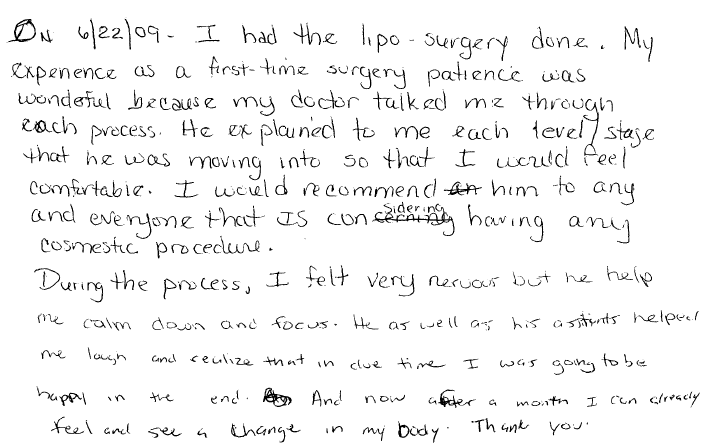 ON 6/22/09 - I had the lipo-surgery done. My
experience as a first-time surgery patience was
wondeful because my doctor talked me through
each process. He explained to me each level/stage
that he was moving into so that I would feel
comfortable. I would recommend him to any
and everyone that IS considering having any
cosmestic procedure.
During the process, I felt very nervous but he help
me calm down and focus. He as well as his asstints helped
me laugh and realize that in due time I was going to be
happy in the end. And now after a month I can already
feel and see a change in my body. Thank you.